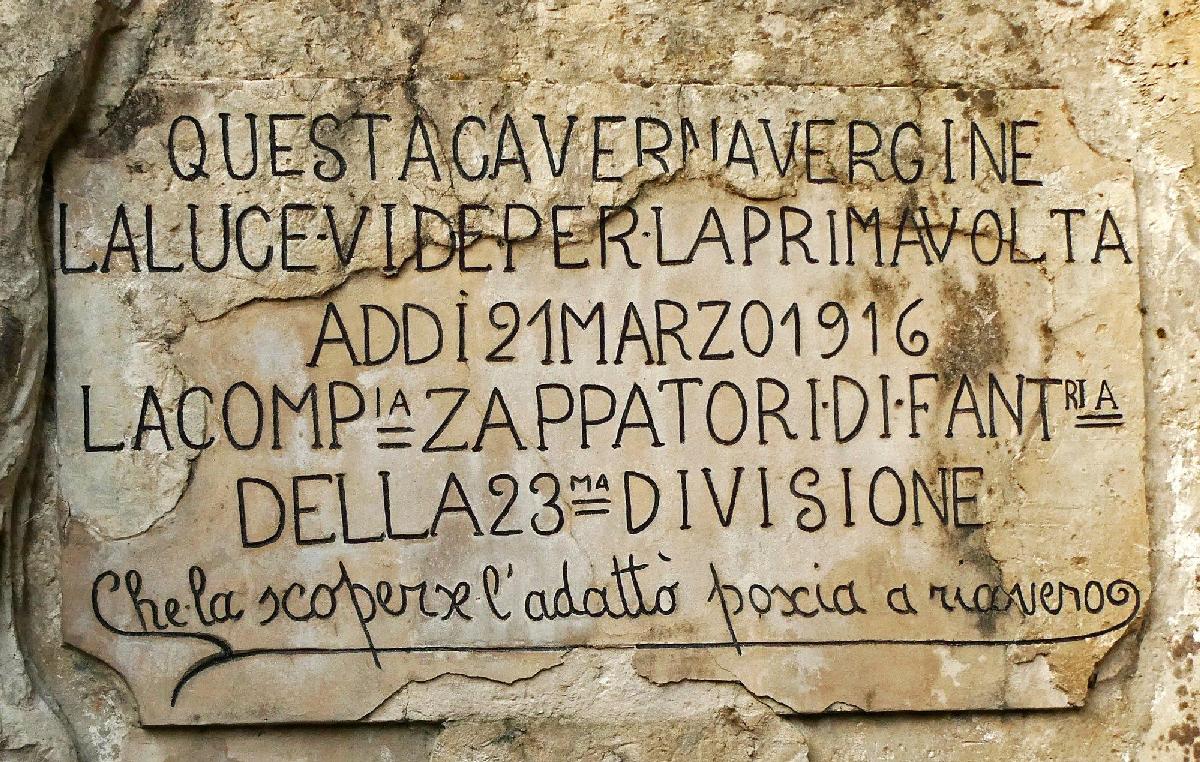 QUESTA CAVERNA VERGINE
LA LUCE·VIDE·PER·LA PRIMA VOLTA
ADDÌ 21 MARZO 1916
LA COMPIA ZAPPATORI·DI·FANTRIA
DELLA 23MA DIVISIONE
Che·la scoperse·l'adattò poscia a ricovero